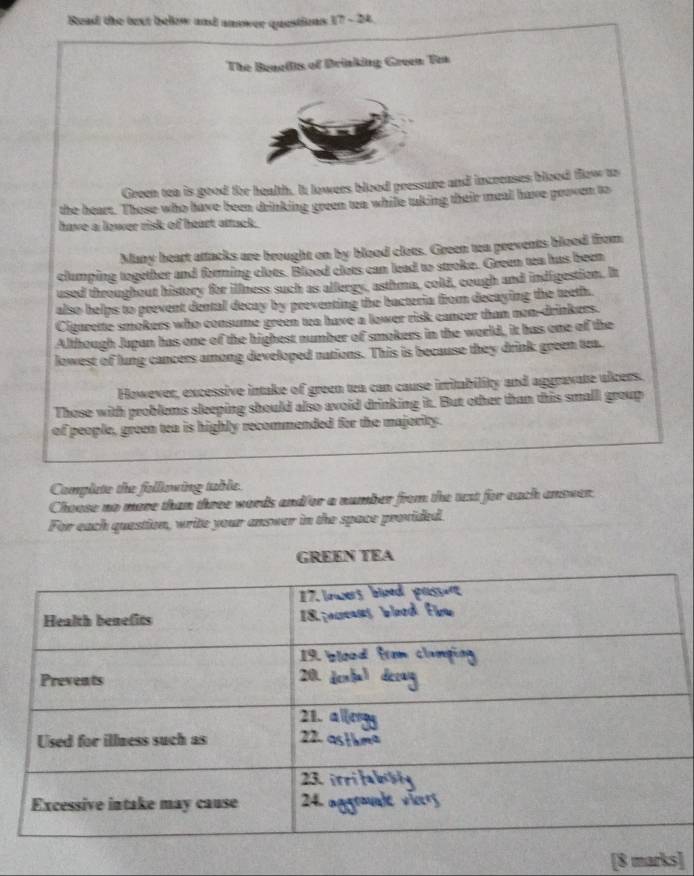 Read the text below and answer questions 17 - 24.
The Benefits of Drinking Green Tea
Green tea is good for health. It lowers blood pressure and increases blood flow to
the heart. Those who have been drinking green tea while taking their meal have proven to
have a lower risk of heart attack.
Many heart attacks are brought on by blood clots. Green tea prevents blood from
clumping together and forming clots. Blood clots can lead to stroke. Green tea has been
used throughout history for illness such as allergy, asthma, cold, cough and indigestion. It
also helps to prevent dental decay by preventing the bacteria from decaying the teeth.
Cigarette smokers who consume green tea have a lower risk cancer than non-drinkers.
Although Japan has one of the highest number of smokers in the world, it has one of the
lowest of lung cancers among developed nations. This is because they drink green tea.
However, excessive intake of green tea can cause irritability and aggravate ulcers.
Those with problems sleeping should also avoid drinking it. But other than this small group
of people, green tea is highly recommended for the majority.
Complete the following table.
Choose no more than three words and/or a number from the text for each answer.
For each question, write your answer in the space provided.
GREEN TEA
Health benefits
17. lowers blood pressure
18. increases blood flow
Prevents
19. blood from clumping
20. dental decay
Used for illness such as
21. allergy
22. asthma
Excessive intake may cause
23. irritability
24. aggravate ulcers
[8 marks]